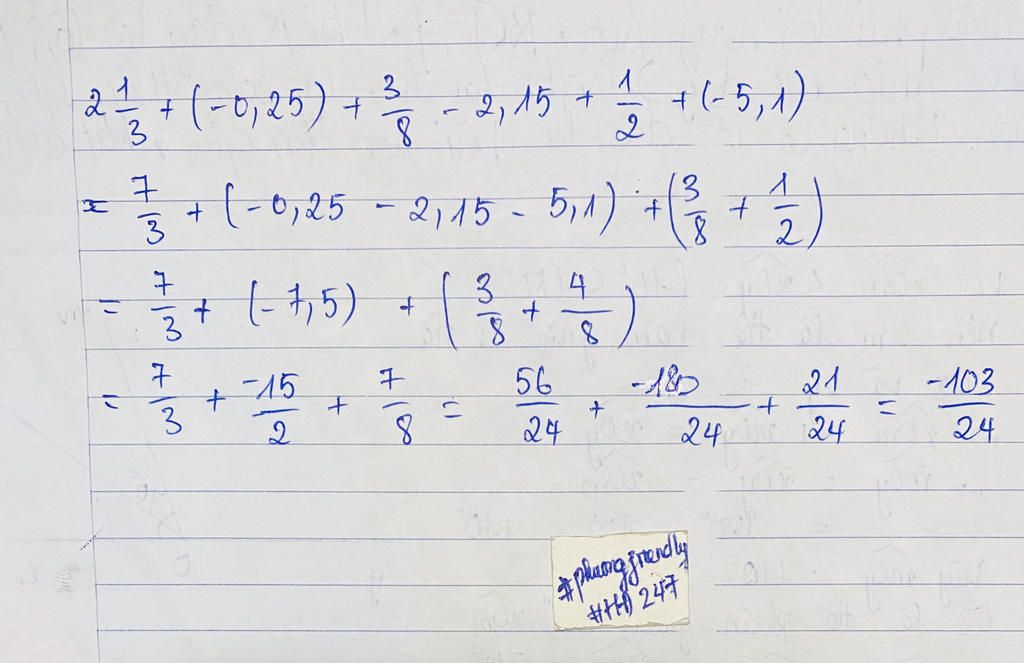 2 1/3 + (-0,25) + 3/8 - 2,15 + 1/2 + (-5,1)
= 7/3 + (-0,25 - 2,15 - 5,1) + (3/8 + 1/2)
= 7/3 + (-7,5) + (3/8 + 4/8)
= 7/3 + -15/2 + 7/8 = 56/24 + -180/24 + 21/24 = -103/24
#phuongfriendly
247